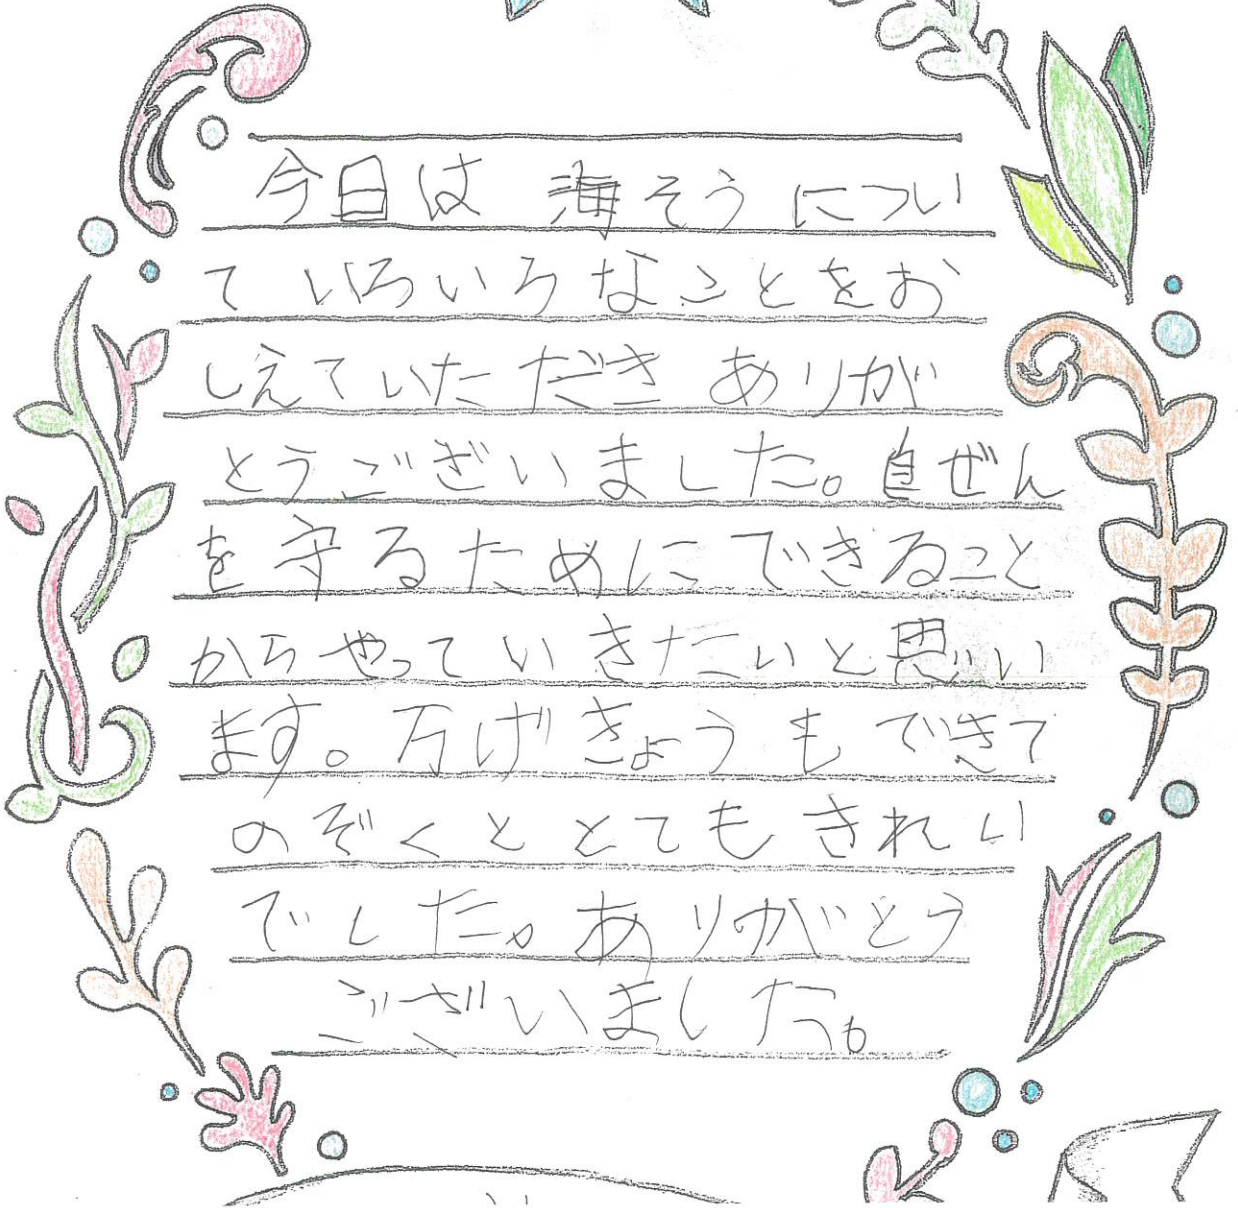 今日は 海そうについ
ていろいろなことをお
しえていただきありが
とうございました。自ぜん
を守るためにできること
からやっていきたいと思い
ます。万げきょうもできて
のぞくととてもきれい
でした。ありがとう
ございました。